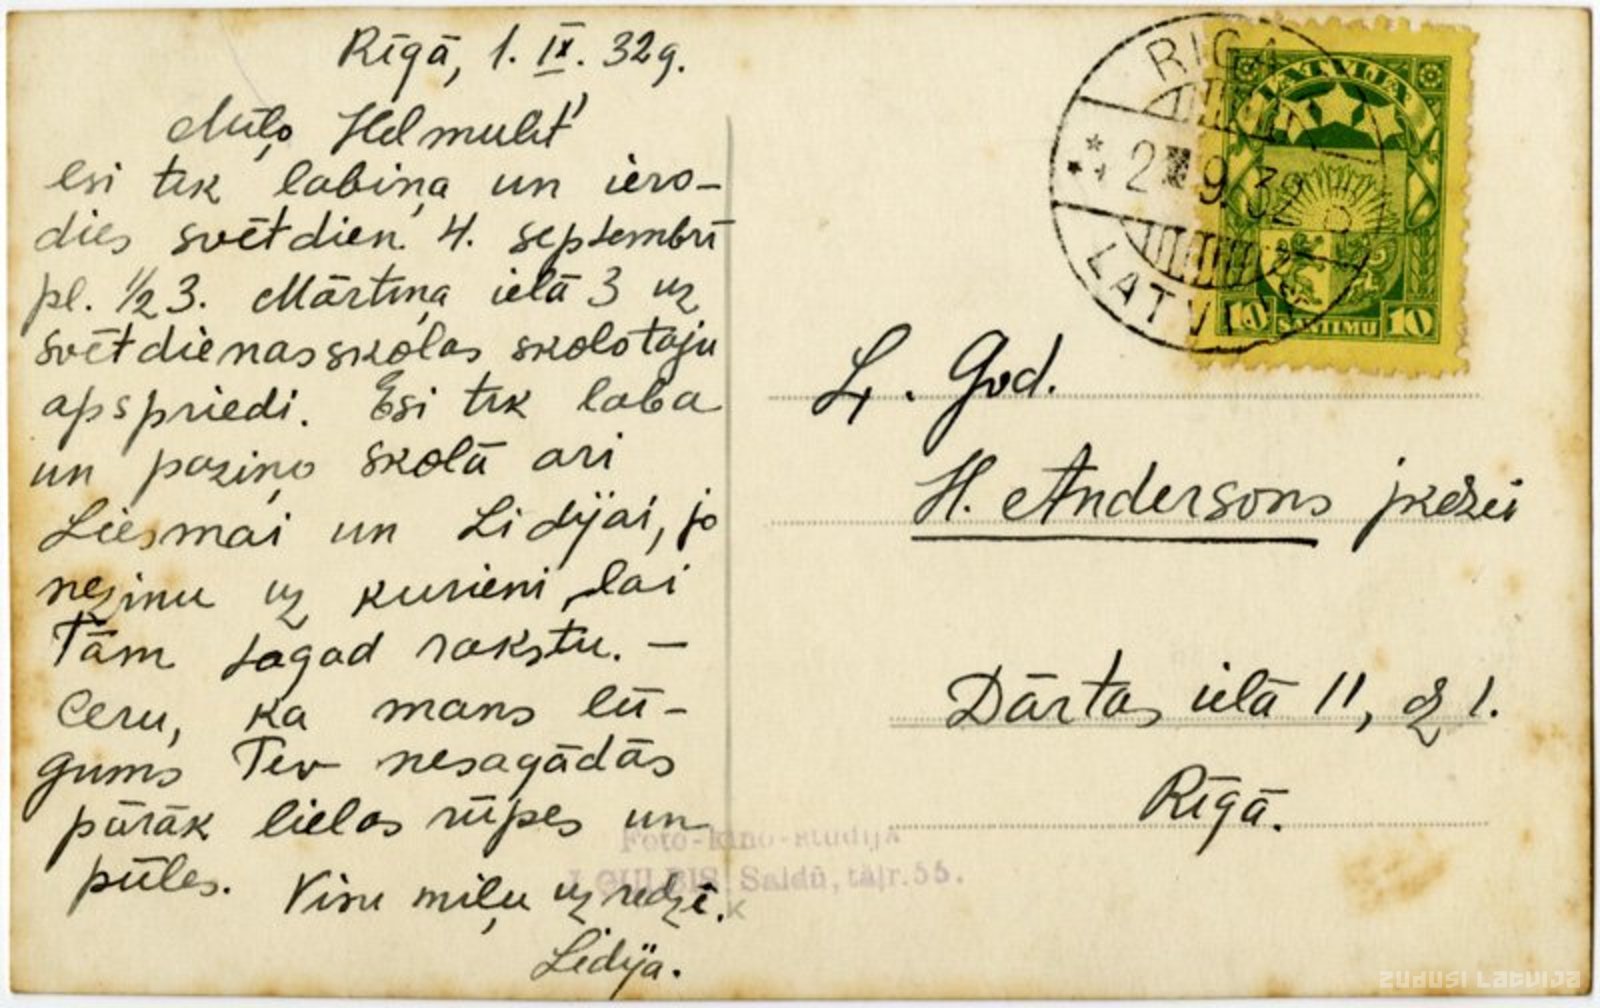 Rīgā, 1. IX. 32g.
Mīļo Helmult!
Esi tik labiņa un iero-
dies svētdien 4. septembrī
pl. 1/2 3. Mārtiņa ielā 3 uz
svētdienasskolas skolotāju
apspriedi. Esi tik laba
un paziņo skolā arī
Liesmai un Lidijai, jo
nezinu uz kurieni lai
Tām tagad rakstu. –
Ceru, ka mans lū-
gums Tev nesagādās
pārāk lielas rūpes un
pūles. Visu miļu uz redzē.
Lidija.
RIGA
2 9.32
LATVIJA
LATVIJA
10 SANTIMU 10
L. God.
H. Andersons jkdzei
Dārtas ielā 11, dz 1.
Rīgā.
Foto-kino-studija
J. GULBIS, Saldū, tāļr. 55.
zudusi Latvija